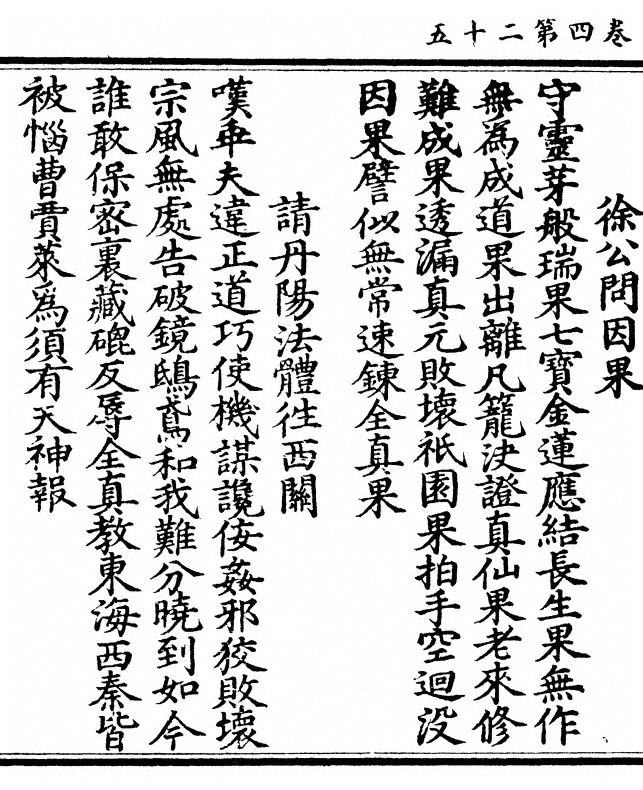 卷四第二十五
徐公問因果
守靈芽般瑞果七寶金蓮應結長生果無作
無為成道果出離凡籠決證真仙果老來修
難成果透漏真元敗壞祇園果拍手空迴没
因果譬似無常速鍊全真果
請丹陽法體往西關
嘆車夫違正道巧使機謀讒佞姦邪狡敗壞
宗風無處告破鏡鴟鳶和我難分曉到如今
誰敢保密裏藏磇反辱全真教東海西秦皆
被惱曹賈萊為須有天神報